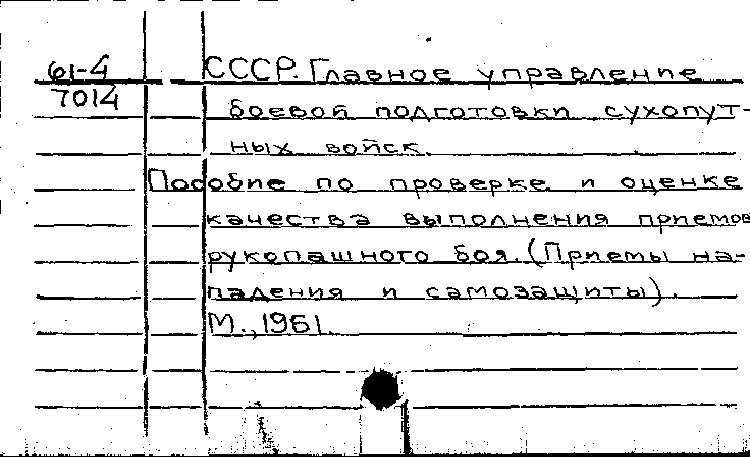 61-4
7014
СССР. Главное управление
боевой подготовки сухопут-
ных войск.
Пособие по проверке и оценке
качества выполнения приемов
рукопашного боя. (Приемы на-
падения и самозащиты).
М., 1961.